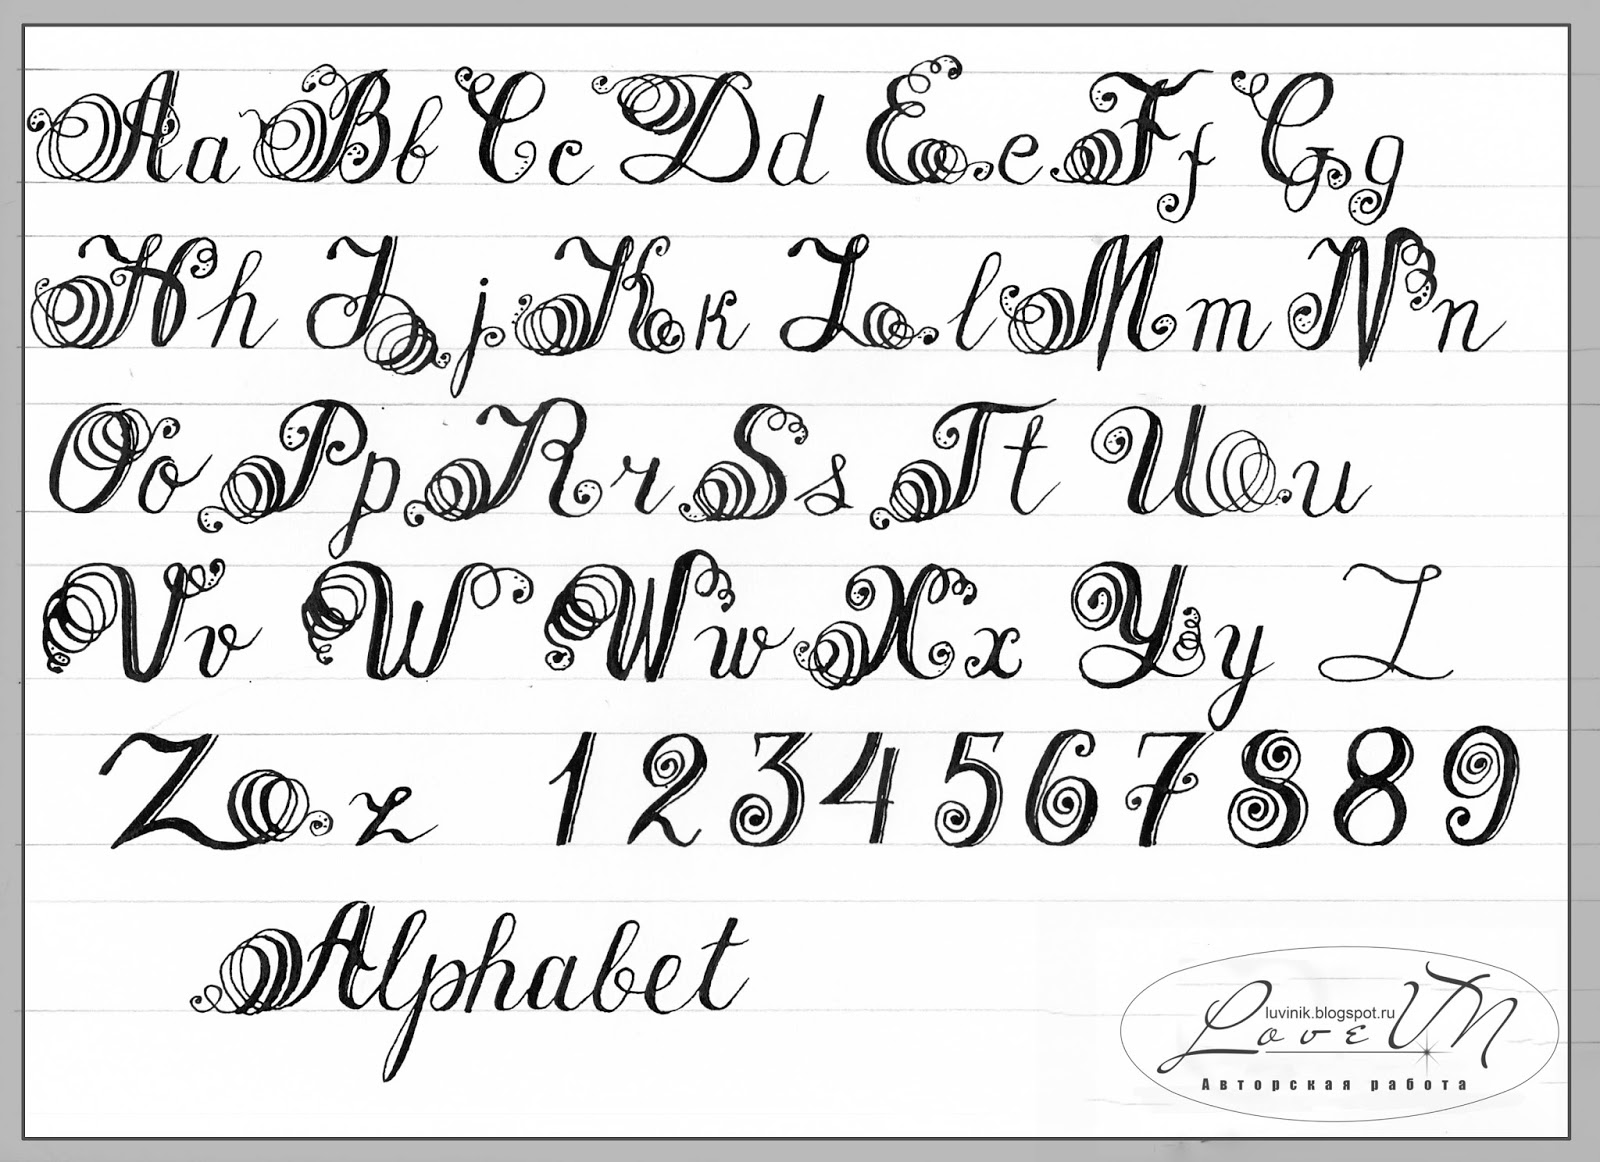 Aa Bb Cc Dd Ee Ff Gg
Hh J j Kk L l Mm Nn
Oo Pp Rr Ss Tt Uu
Vv W Ww Xx Yy L
Zz 1 2 3 4 5 6 7 8 8 9
Alphabet
luvinik.blogspot.ru
Love VM
Авторская работа